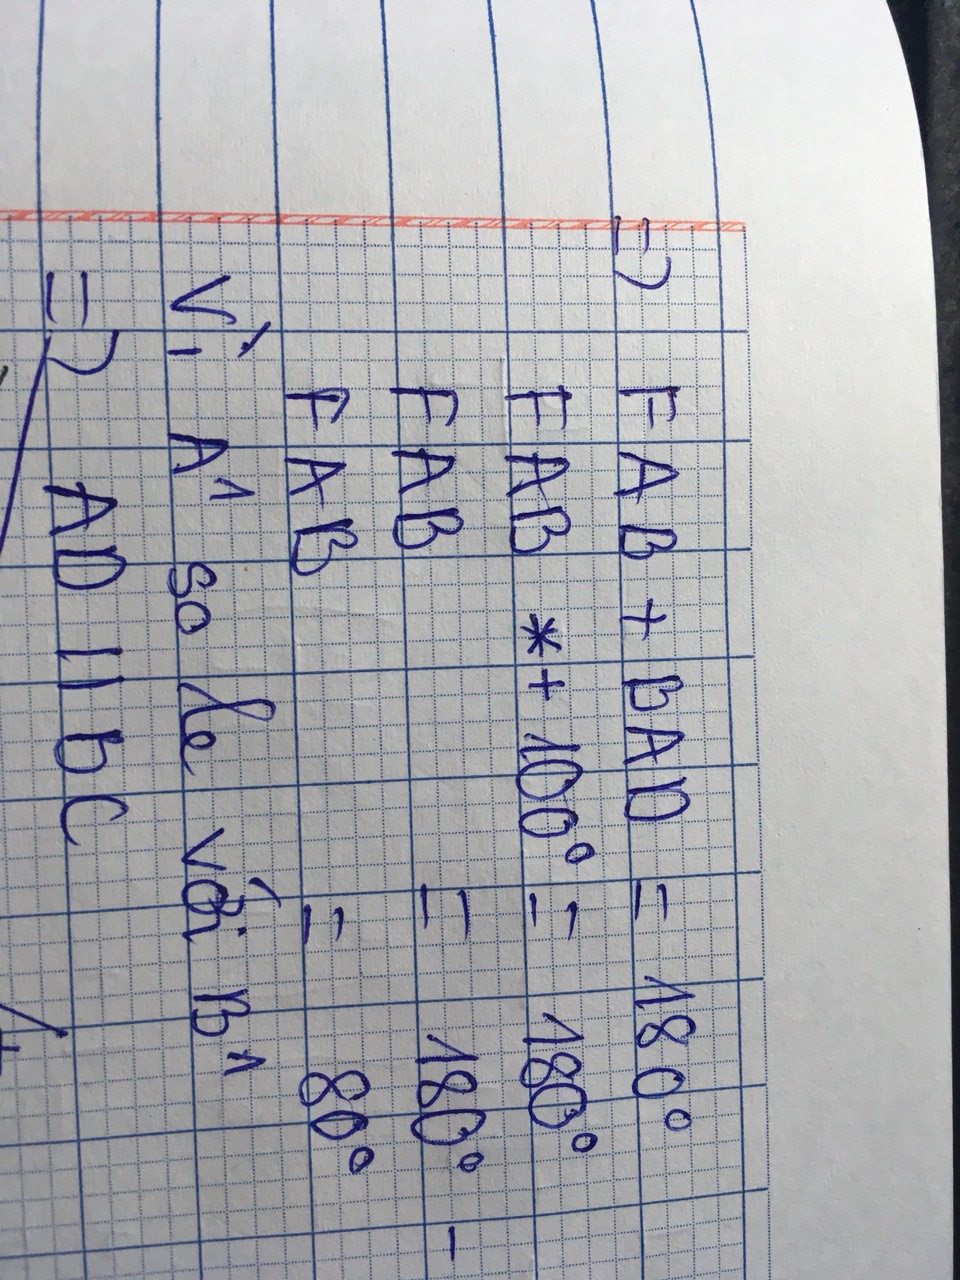 => FAB + BAD = 180°
FAB + 100° = 180°
FAB = 180° -
FAB = 80°
Vì A1 so le với B1
=> AD // BC